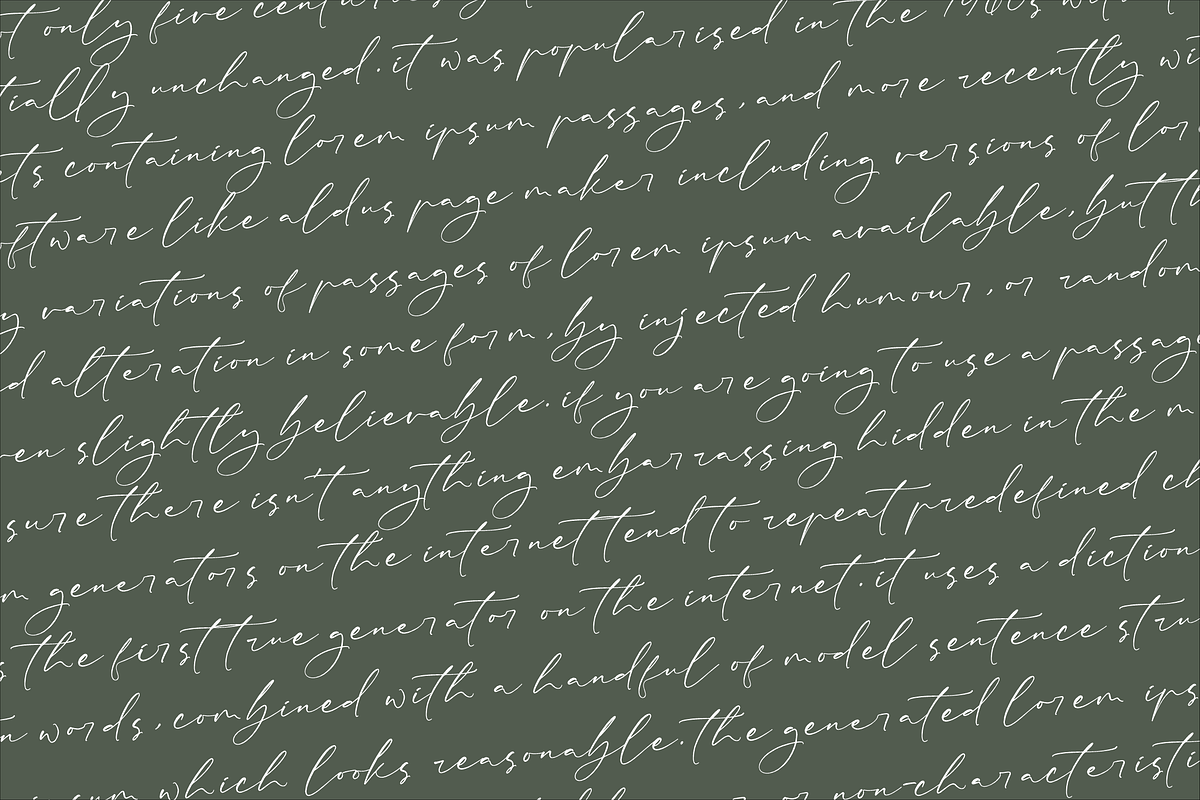 t only five
tially unchanged. it was popularised in the 1960s with
ts containing lorem ipsum passages, and more recently wi
oftware like aldus page maker including versions of lor
y variations of passages of lorem ipsum available, but th
d alteration in some form, by injected humour, or random
en slightly believable. if you are going to use a passage
sure there isn't anything embarrassing hidden in the m
m generators on the internet tend to repeat predefined ch
s the first true generator on the internet. it uses a diction
n words, combined with a handful of model sentence stru
ipsum which looks reasonable. the generated lorem ips
or non-characteristi